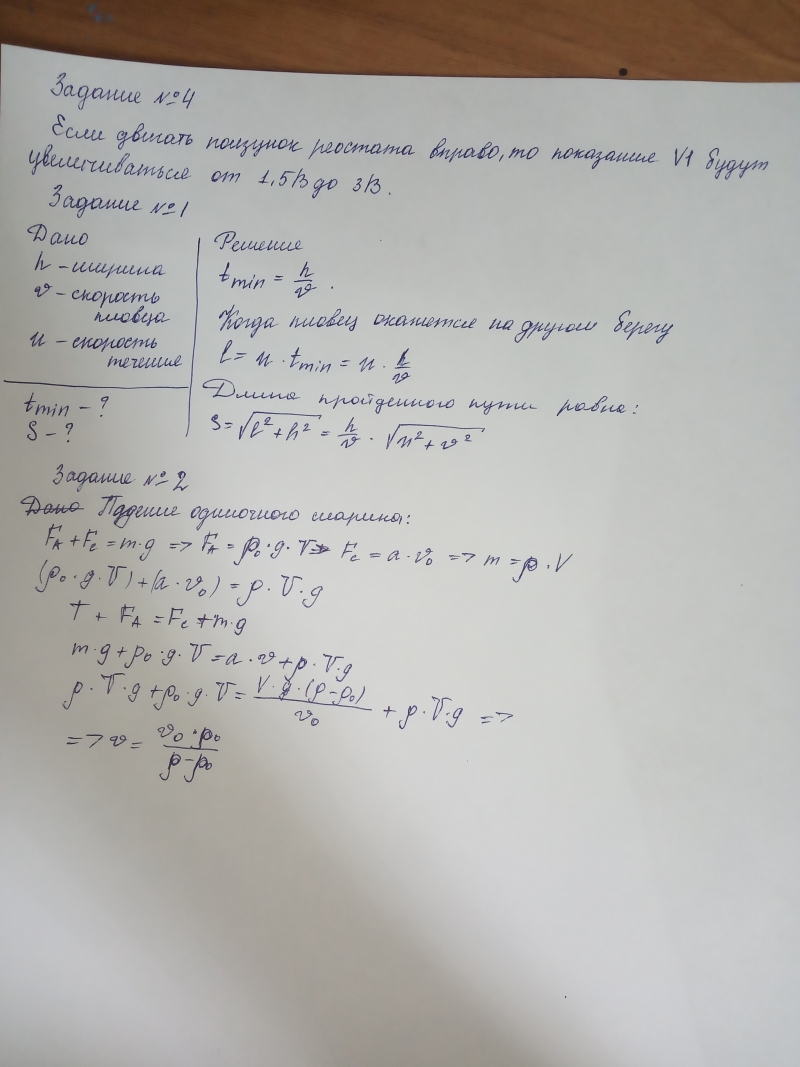 Задание №4
Если двигать ползунок реостата вправо, то показание V1 будут
увеличиваться от 1,5 В до 3 В.
Задание №1
Дано
h - ширина
v - скорость
пловца
u - скорость
течения
tmin - ?
S - ?
Решение
tmin = h/v .
Когда пловец окажется на другом берегу
l = u · tmin = u · h/v
Длина пройденного пути равна:
S = √(l² + h²) = h/v · √(u² + v²)
Задание №2
Дано Падение одиночного шарика:
FA + Fc = m·g => FA = ρ0·g·V => Fc = a·v0 => m = ρ·V
(ρ0·g·V) + (a·v0) = ρ·V·g
T + FA = Fc + m·g
m·g + ρ0·g·V = a·v + ρ·V·g
ρ·V·g + ρ0·g·V = V·g·(ρ-ρ0)/v0 + ρ·V·g =>
=> v = v0·ρ0/ρ-ρ0